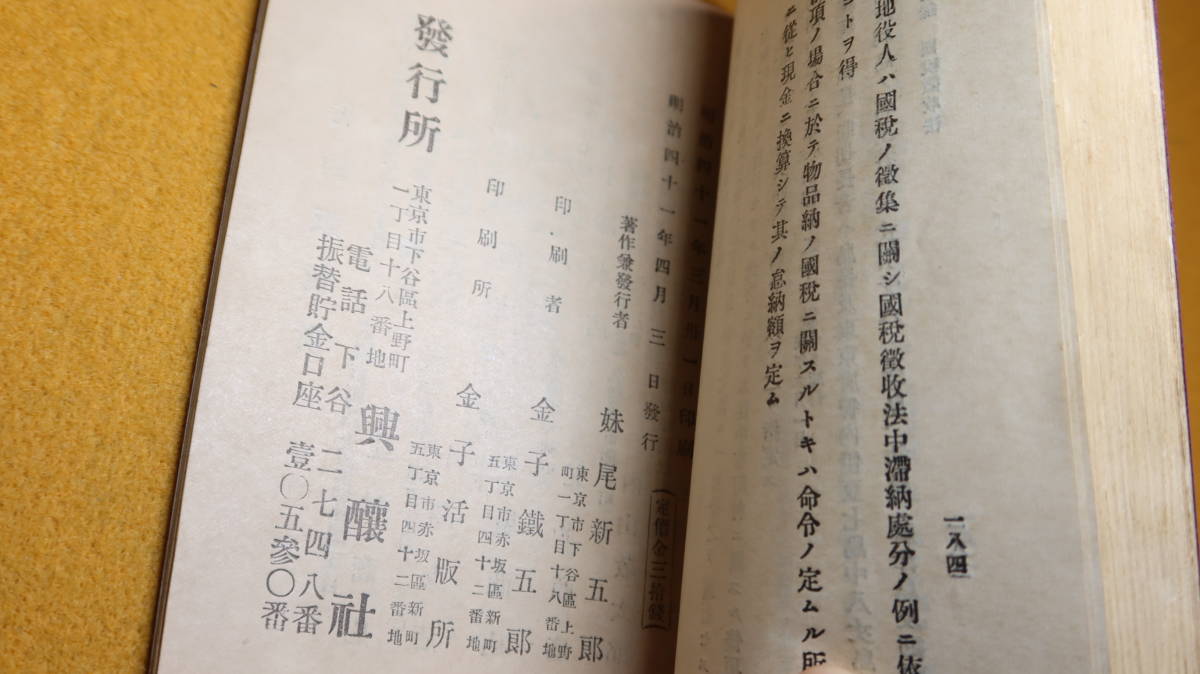 地役人ハ國稅ノ徵集ニ關シ國稅徵收法中滯納處分ノ例ニ依
コトヲ得
項ノ場合ニ於テ物品納ノ國稅ニ關スルトキハ命令ノ定ムル所
ニ從ヒ現金ニ換算シテ其ノ怠納額ヲ定ム
一八四
明治四十一年三月卅一日印刷
明治四十一年四月三日發行
(定價金三拾錢)
著作兼發行者
妹尾新五郎
東京市下谷區上野
町一丁目十八番地
印刷者
金子鐵五郎
東京市赤坂區新町
五丁目四十二番地
印刷所
金子活版所
東京市赤坂區新町
五丁目四十二番地
發行所
東京市下谷區上野町
一丁目十八番地
興釀社
電話下谷二七四八番
振替貯金口座壹〇五參〇番